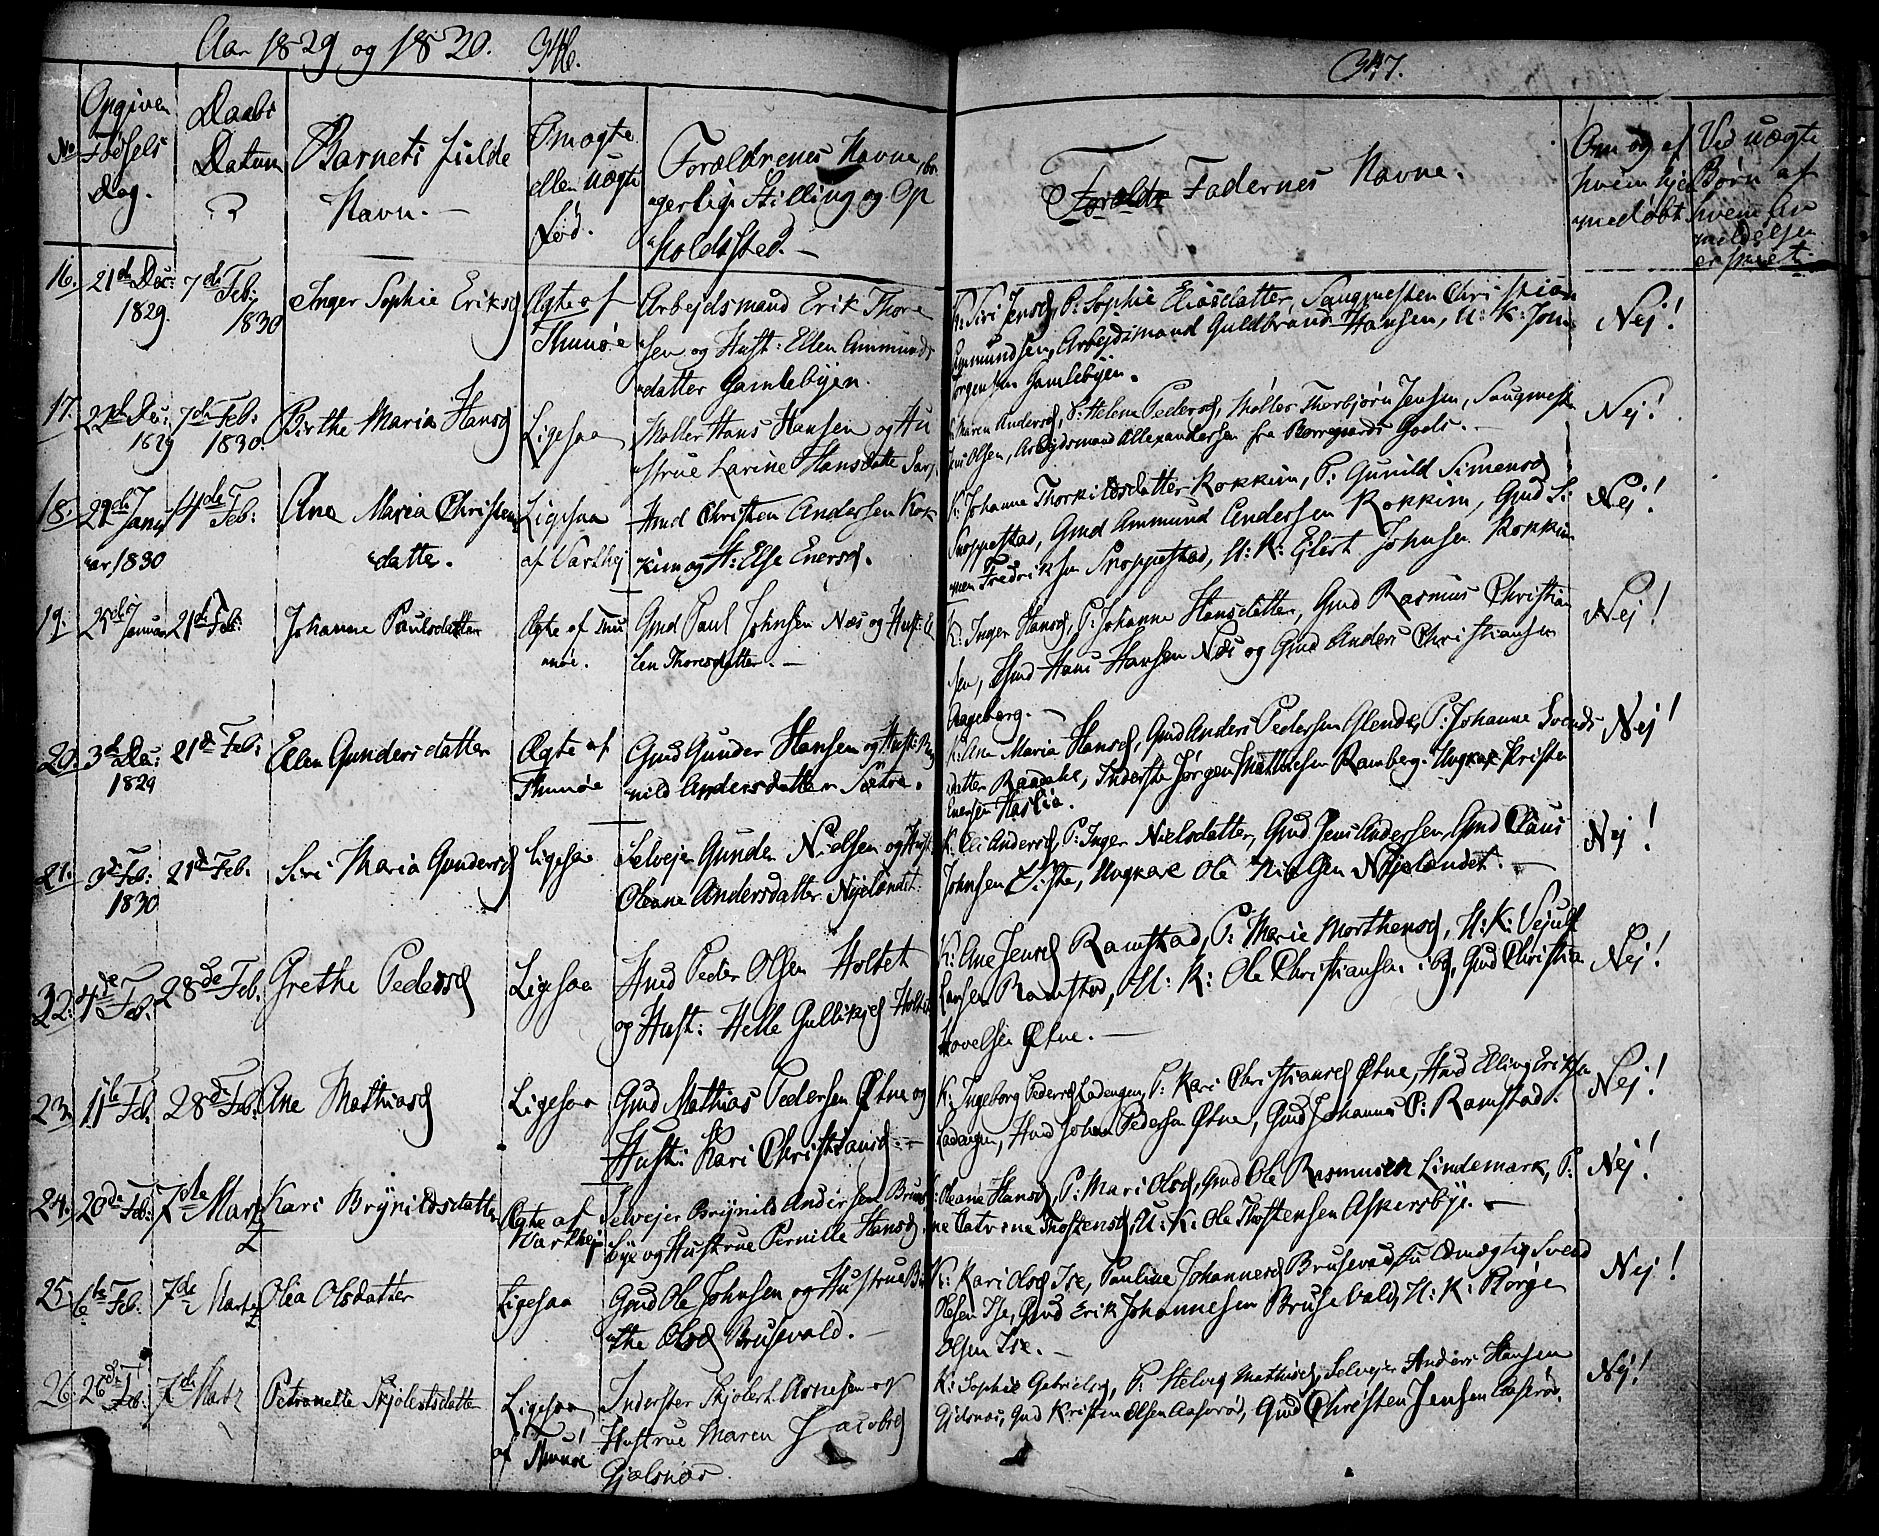 Aar 1829 og 1830. 346.
347.
No
Opgiven Fødsels Dag.
Daabs Datum
Barnets fulde Navn. —
Om ægte eller uægte Fød.
Forældrenes Navne, bor-
gerlige Stilling og Op-
holdsted. —
Fadernes Navne.
Om og af hvem hjemmedøbt
Ved uægte Børn af hvem Anmeldelsen er skeet.
16. 21de Dec: 1829. 7de Feb: 1830 Inger Sophie Eriksd Ægte af Thunøe
Arbejdsmand Erik Thore-
sen og Hust: Ellen Ammunds-
datter Gamlebyen.
K: Siri Jensd, P: Sophie Eliasdatter, Saugmester Christian
Ammundsen, Arbejdsmand Guldbrand Hansen, U: K: John
Jørgensen Gamlebyen.
Nej!
17. 22de Dec: 1829 7de Feb: 1830. Birthe Maria Hansd Ligesaa
Møller Hans Hansen og Hu-
strue Karine Hansdatte Sarp
K: Maren Andersd, P: Helene Pedersd, Møller Thorbjørn Jensen, Saugmester
Jens Olsen, Arbejdsmand Allexandersen fra Borregaards Gods. —
Nej!
18. 29de Janu-
ar 1830 14de Feb: Ane Maria Christens-
datte. Ligesaa
af Varthej
Hmd Christen Andersen Rok-
kim og H: Else Enersd.
K: Johanne Thorkildsdatter Rokkim, P: Gunild Simensd
Snoppestad, Gmd Ammund Andersen Rokkim, Gmd Si-
men Fredriksen Snoppestad, U: K: Ejlert Johnsen Rokkim
Nej!
19. 25de Januar 21de Feb: Johanne Paulsdatter Ægte af Thu-
nøe.
Gmd Paul Johnsen Næs og Hust: E-
len Thoresdatter. —
K: Inger Hansd, P: Johanne Hansdatter, Gmd Rasmus Christian-
sen, Gmd Hans Hansen Næs og Gmd Anders Christiansen
Aageberg. —
Nej!
20. 3de Dec: 1829 21de Feb: Ellen Gundersdatter Ægte af Thunøe
Gmd Gunder Hansen og Hust: Ra-
nild Andersdatter Sætra.
K: Ane Maria Hansd, Gmd Anders Pedersen Glende, P: Johanne Svends-
datter Raaake, Inderste Jørgen Matthesen Ramberg. Ungkar Kristen
Enersen Haslia.
Nej!
21. 3de Feb: 1830 21de Feb. Siri Maria Gundersd Ligesaa
Selvejer Gunder Nielsen og Hust:
Oleane Andersdatter Nyelandet.
K: Eli Andersd, P: Inger Nielsdatter, Gmd Jens Andersen, Gmd Claus
Johnsen Liste, Ungkare Ole Nielsen Nyelandet. —
Nej!
32. 4de Feb: 28de Feb. Grethe Pedersd Ligesaa
Hmd Peder Olsen Holtet
og Hust: Helle Gulliksd Holtet
K: Ane Jensd Ramstad, P: Marie Morthensd, U: K: Vejulf
Larsen Ramstad, U: K: Ole Christiansen ibid, Gmd Christian
Hovelsen Østne. —
Nej!
23. 11te Feb. 28de Feb. Ane Mathiasd Ligesaa
Gmd Mathias Pedersen Østne og
Hust: Kari Christiansd. —
K: Ingeborg Pedersd Ladengen, P: Kari Christiansd Østne, Hmd Elling Eriksen
Ladengen, Hmd Johan Pedersen Østne, Gmd Johannes P: Ramstad.
Nej!
24. 20de Feb: 7de Martz Kari Brynildsdatter Ægte af Varthej
Selvejer Brynild Andersen Brun-
bye og Hustrue Pernille Hansd
K: Oleane Hansd, P: Mari Olsd, Gmd Ole Rasmusen Lindemark, P:
ne Catrine Thostensd, U: K: Ole Thostensen Askersbye. —
Nej!
25. 6te Feb. 7de Martz Olia Olsdatter Ligesaa
Gmd Ole Johnsen og Hustrue Bir-
the Olsd Brusevald. —
K: Kari Olsd Ise, Pauline Johannesd Brusevald, Svend
Olsen Ise, Gmd Erik Johannesen Brusevald, U: K: Børge
Olsen Ise. —
Nej!
26. 26de Feb: 7de Martz Petronelle Skjolertsdatter Ligesaa
af Thunøe
Inderster Skjolert Arnesen og
Hustrue Maren Jacobsd
Gjelsnæs.
K: Sophie Gabrielsd, P: Helvig Mathisd, Selvejer Anders Hansen
Gjelsnæs, Gmd Kristen Olsen Aaserød, Gmd Christen Jensen Aaserød.
Nej!